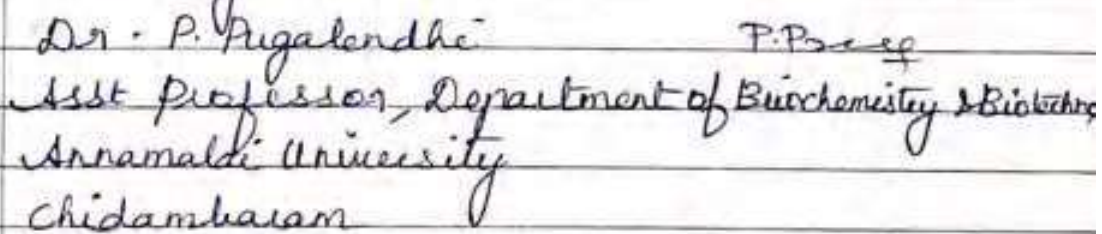 Dr. P. Pugalendhi
Asst Professor, Department of Biochemistry & Biotechno
Annamalai University
Chidambaram